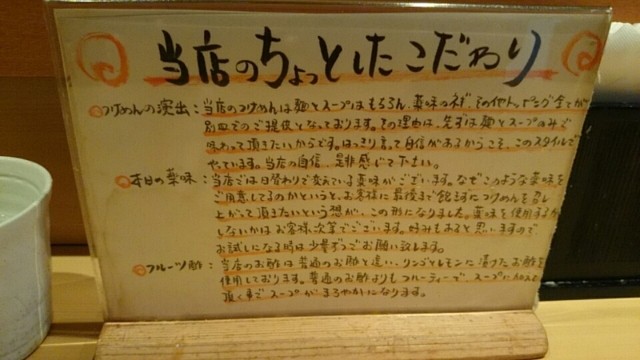 当店のちょっとしたこだわり
つけめんの演出：当店のつけめんは麺とスープはもちろん、薬味のネギ、その他トッピング全てが
別皿でのご提供となっております。その理由は、先ずは麺とスープのみで
味わって頂きたいからです。はっきり言って自信があるからこそ、このスタイルで
やっています。当店の自信、是非感じて下さい。
本日の薬味：当店では日替わりで変えている薬味がございます。なぜこのような薬味を
ご用意してるのかというと、お客様に最後まで飽きずにつけめんを召し
上がって頂きたいという想いが、この形になりました。薬味を使用するか
しないかはお客様次第でございます。好みもあると思いますので
お試しになる時は少量ずつでお願い致します。
フルーツ酢：当店のお酢は普通のお酢と違い、リンゴとレモンに漬けたお酢を
使用しております。普通のお酢よりもフルーティーで、スープに加えて
頂く事でスープがまろやかになります。